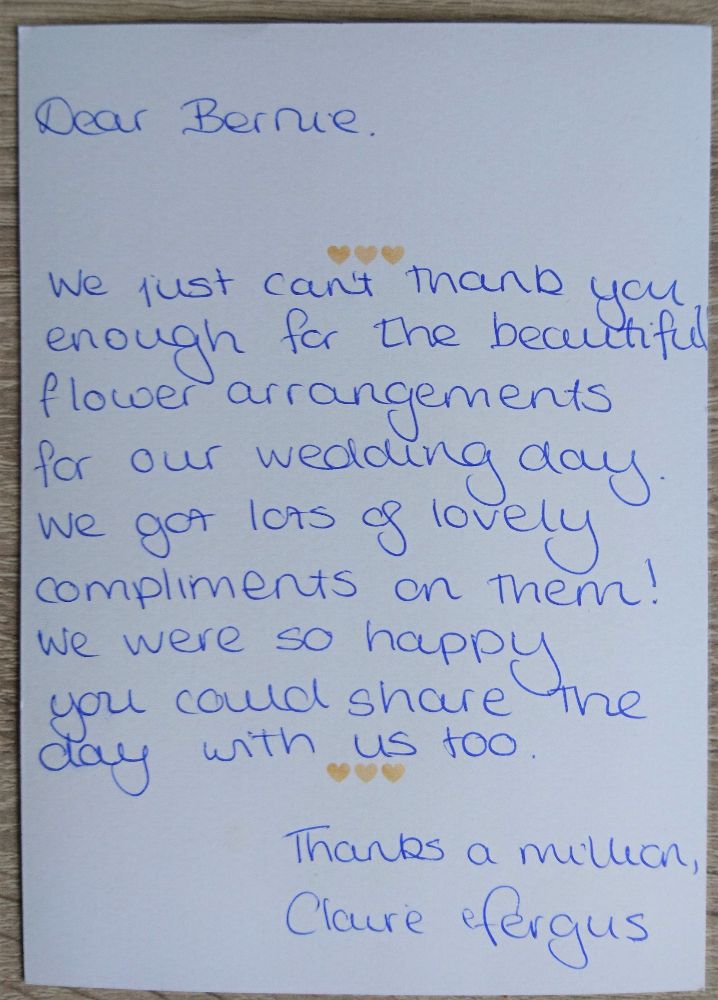 Dear Bernie.
We just can't thank you
enough for the beautiful
flower arrangements
for our wedding day.
We got lots of lovely
compliments on them!
We were so happy
you could share the
day with us too.
Thanks a million,
Claire & Fergus